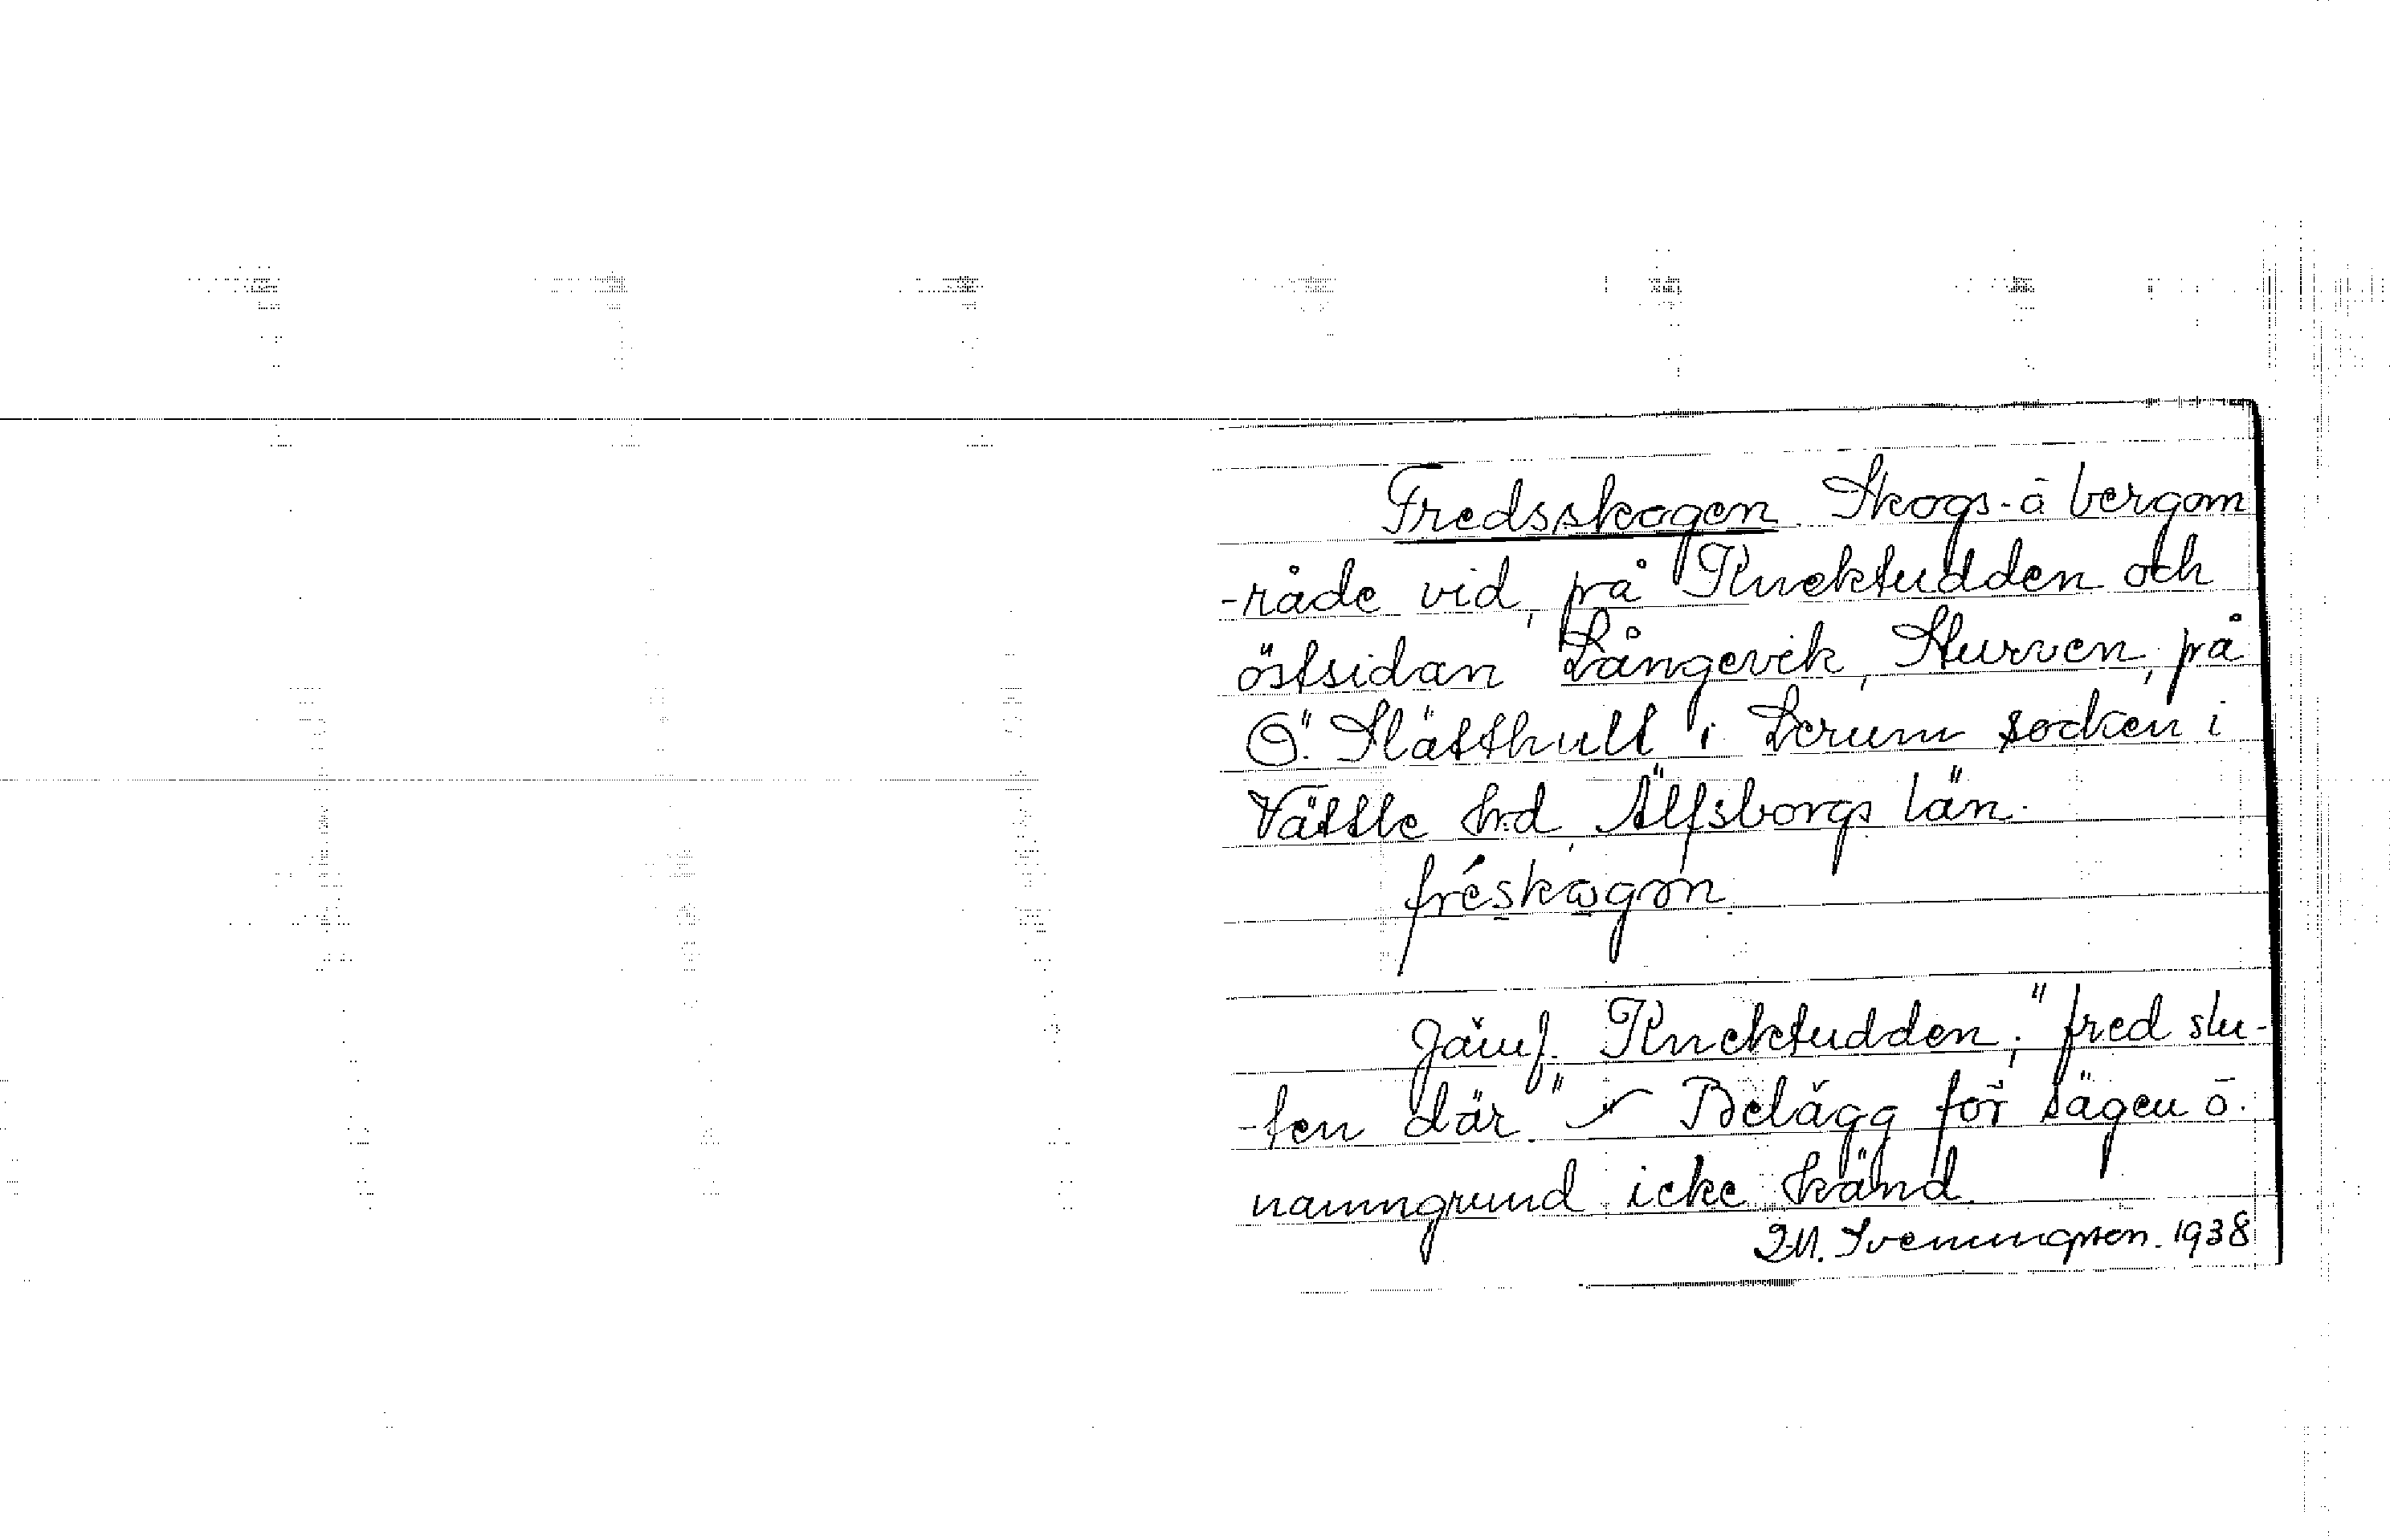 Fredsskogen. Skogs- å bergom
-råde vid, på Knektudden och
östsidan Långevik, Sturven, på
Ö. Slätthult i Lerum socken i
Vättle hrd, Älfsborgs län.
fréskogon.
Jämf. Knektudden; "fred slu-
-ten där." Belägg för sägen o.
namngrund icke känd.
1938